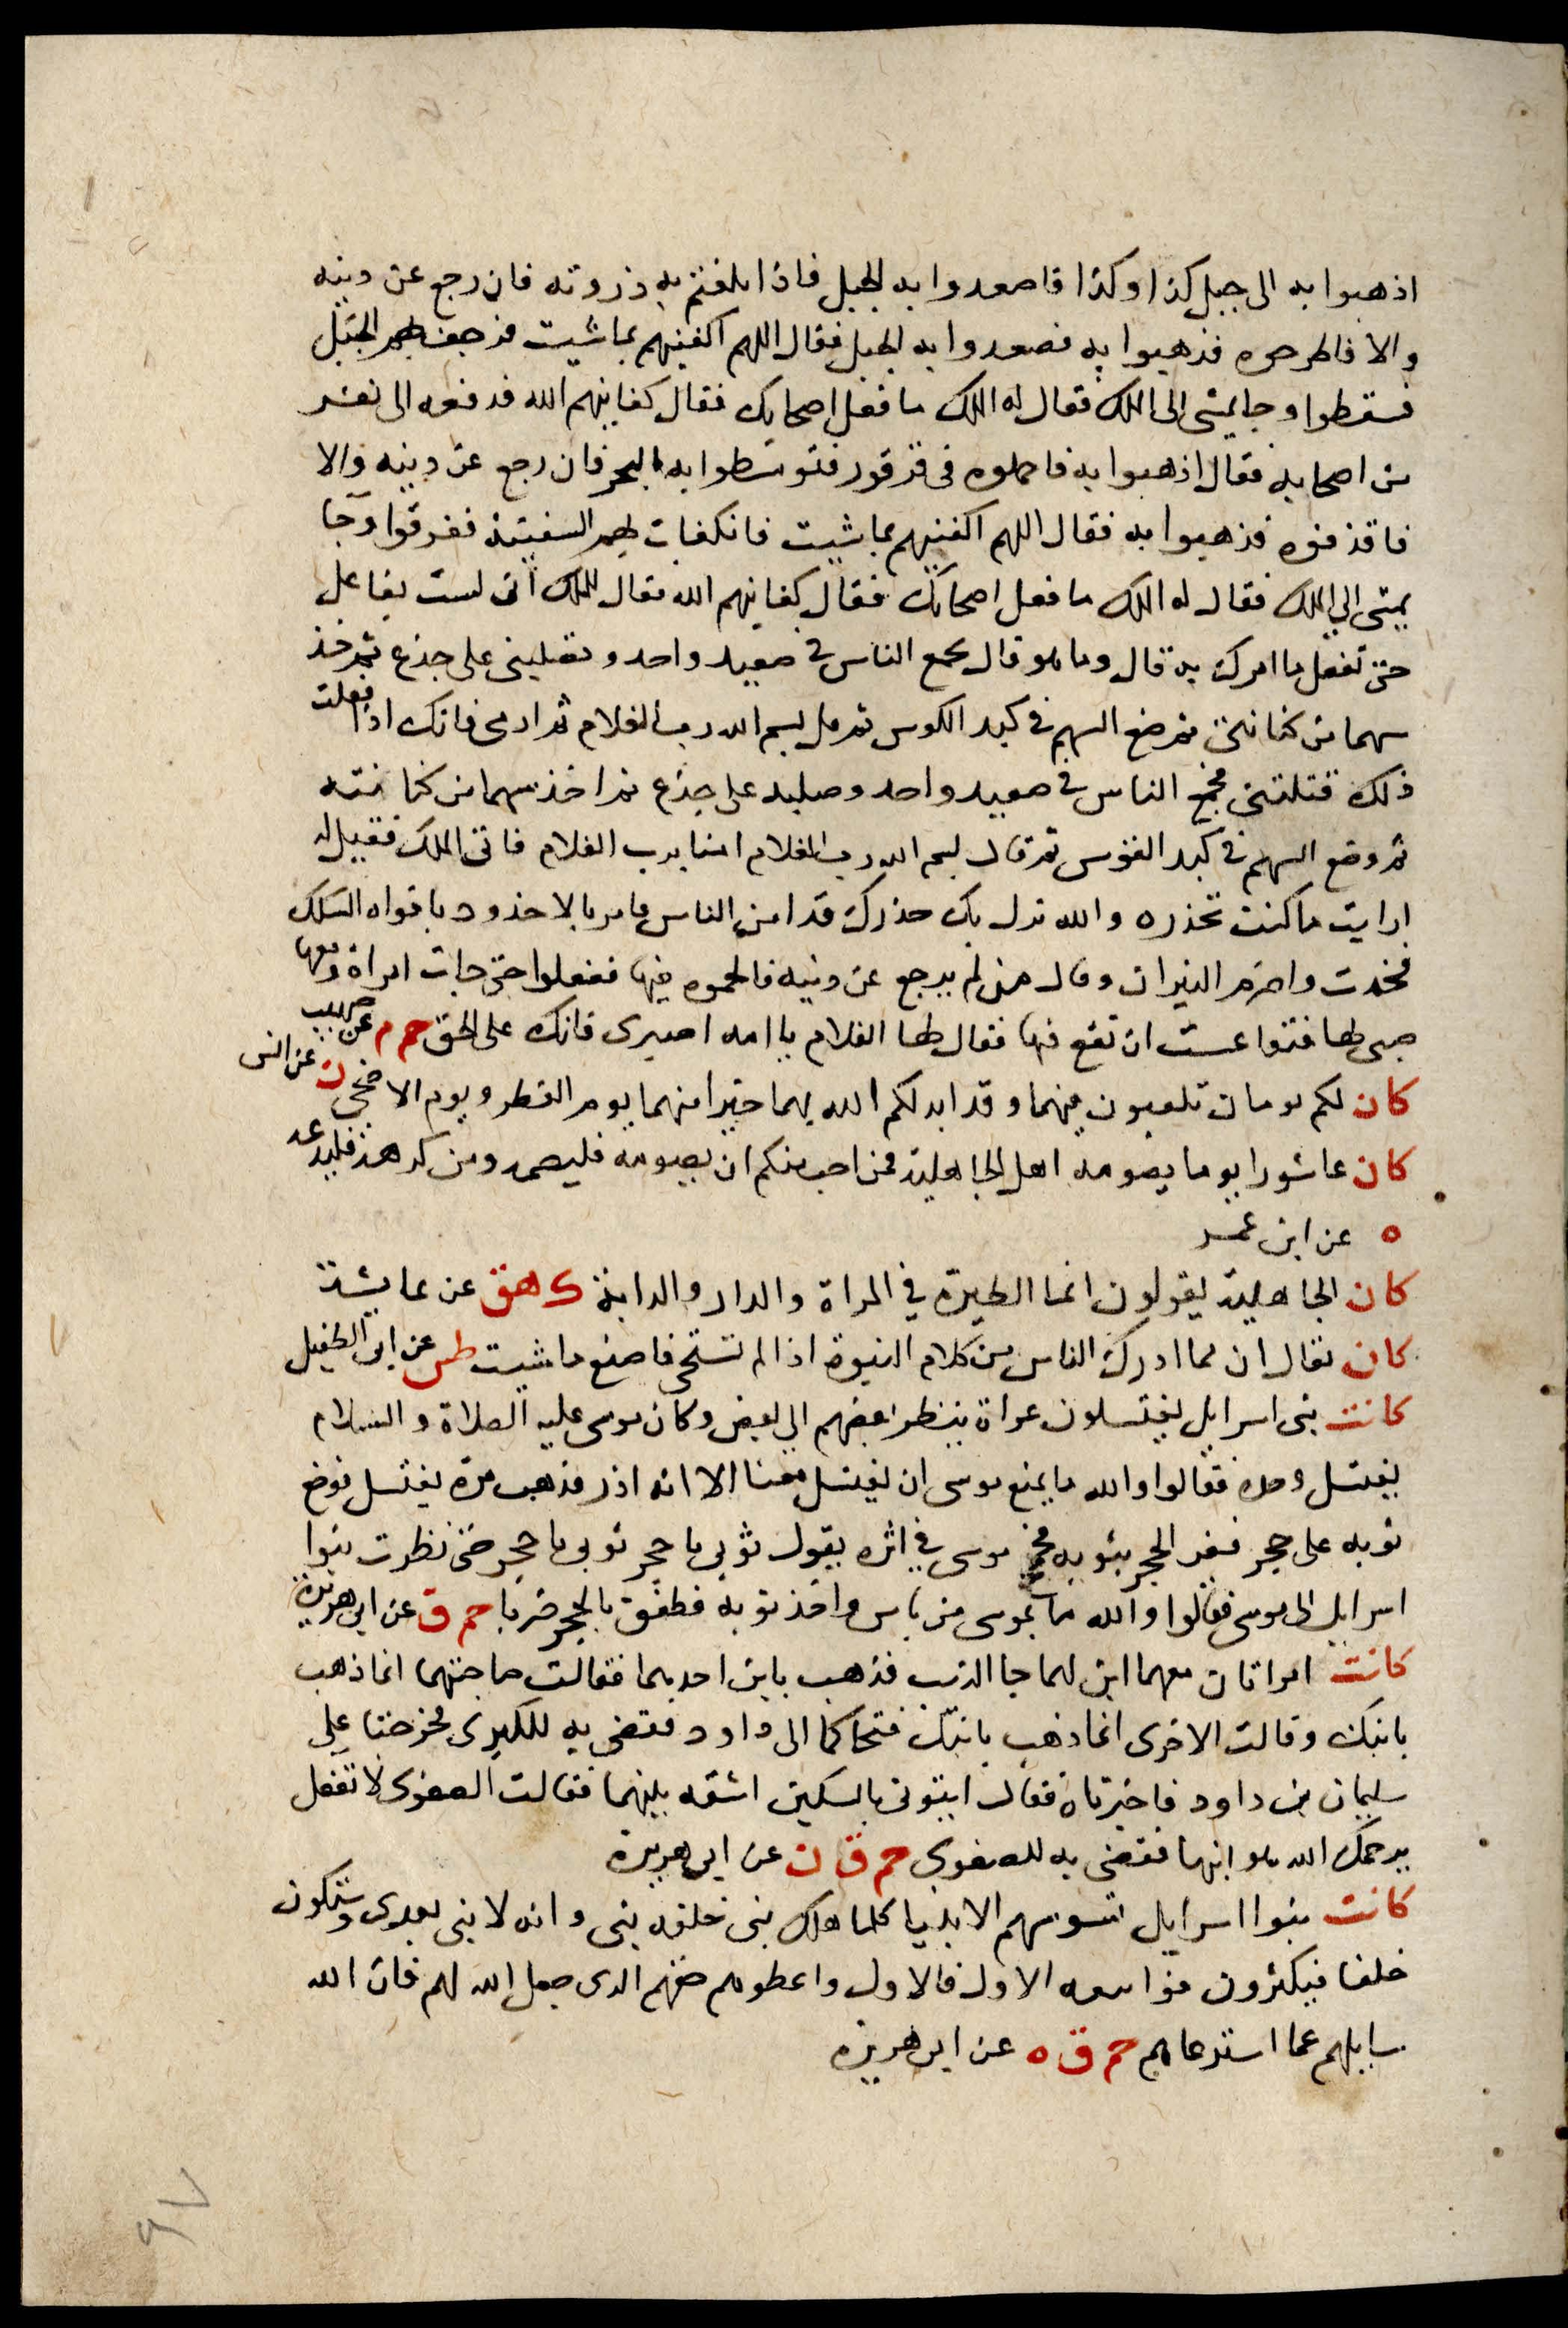 اذهبوا به الى جبل كذا وكذا فاصعدوا به الجبل فاذا بلغتم به ذروته فان رجع عن دينه
والا فاطرحوه فذهبوا به فصعدوا به الجبل فقال اللهم اكفنيهم بما شيت فرجف بهم الجبل
فسقطوا وجا يمشى الى الملك فقال له الملك ما فعل اصحابك فقال كفانيهم الله فدفعه الى نفر
من اصحابه فقال اذهبوا به فاحملوه فى قرقور فتوسطوا به البحر فان رجع عن دينه والا
فاقذفوه فذهبوا به فقال اللهم اكفنيهم بما شيت فانكفات بهم السفينة فغرقوا وجا
يمشى الى الملك فقال له الملك ما فعل اصحابك فقال كفانيهم الله فقال للملك انى لست بفاعل
حتى تفعل ما امرك به قال وما هو قال تجمع الناس فى صعيد واحد وتصلبنى على جذع ثم خذ
سهما من كنانتى ثم ضع السهم فى كبد الكوس ثم قل بسم الله رب الغلام ثم ارمى فانك اذا فعلت
ذلك قتلتنى فجمع الناس فى صعيد واحد وصلبه على جذع ثم اخذ سهما من كنانته
ثم وضع السهم فى كبد القوس ثم قال بسم الله رب الغلام امنا برب الغلام فاتى الملك فقيل له
ارايت ما كنت تحذره والله نزل بك حذرك قد امن الناس فامر بالاخدود بافواه السكك
فخدت واضرم النيران وقال من لم يرجع عن دينه فاقحموه فيها ففعلوا حتى جات امراة ومعها
صبى لها فتقاعست ان تقع فيها فقال لها الغلام يا امه اصبرى فانك على الحق حم م عن صهيب
كان لكم يومان تلعبون فيهما وقد ابدلكم الله بهما خيرا منهما يوم الفطر ويوم الاضحى ن عن انس
كان عاشورا يوما يصومه اهل الجاهلية فمن احب منكم ان يصومه فليصمه ومن كرهه فليدعه
ه عن ابن عمر
كان الجاهلية يقولون انما الطيرة في المراة والدار والدابة ك هق عن عايشة
كان يقال ان مما ادرك الناس من كلام النبوة اذا لم تستحى فاصنع ما شيت طس عن ابى الطفيل
كانت بنى اسرايل يغتسلون عراة ينظر بعضهم الى بعض وكان موسى عليه الصلاة والسلام
يغتسل وحده فقالوا والله ما يمنع موسى ان يغتسل معنا الا انه اذر فذهب مرة يغتسل فوضع
ثوبه على حجر ففر الحجر بثوبه فجمح موسى في اثره يقول ثوبى يا حجر ثوبى يا حجر حتى نظرت بنوا
اسرايل الى موسى فقالوا والله ما بموسى من باس واخذ ثوبه فطفق بالحجر ضربا حم ق عن ابى هريرة
كانت امراتان معهما ابن لهما جا الذيب فذهب بابن احديهما فقالت صاحبتهما انما ذهب
بابنك وقالت الاخرى انما ذهب بابنك فتحاكما الى داود فقضى به للكبرى فخرجتا على
سليمان بن داود فاخبرتاه فقال ايتونى بالسكين اشقه بينهما فقالت الصغرى لا تفعل
يرحمك الله هو ابنها فقضى به للصغرى حم ق ن عن ابى هريرة
كانت بنوا اسرايل تسوسهم الانبيا كلما هلك نبى خلفه نبى وانه لا نبى بعدى وستكون
خلفا فيكثرون فوا ببيعه الاول فالاول واعطوهم حقهم الذى جعل الله لهم فان الله
سايلهم عما استرعاهم حم ق ه عن ابى هريرة